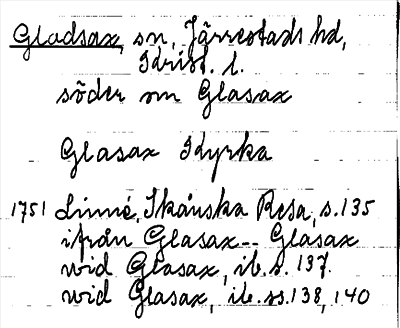 Gladsax, sn, Järrestads hd,
Krist. l.
söder om Glasax
Glasax Kyrka
1751 Linné, Skånska Resa, s. 135
ifrån Glasax-- Glasax
wid Glasax, ib. s. 137.
wid Glasax, ib. ss. 138, 140